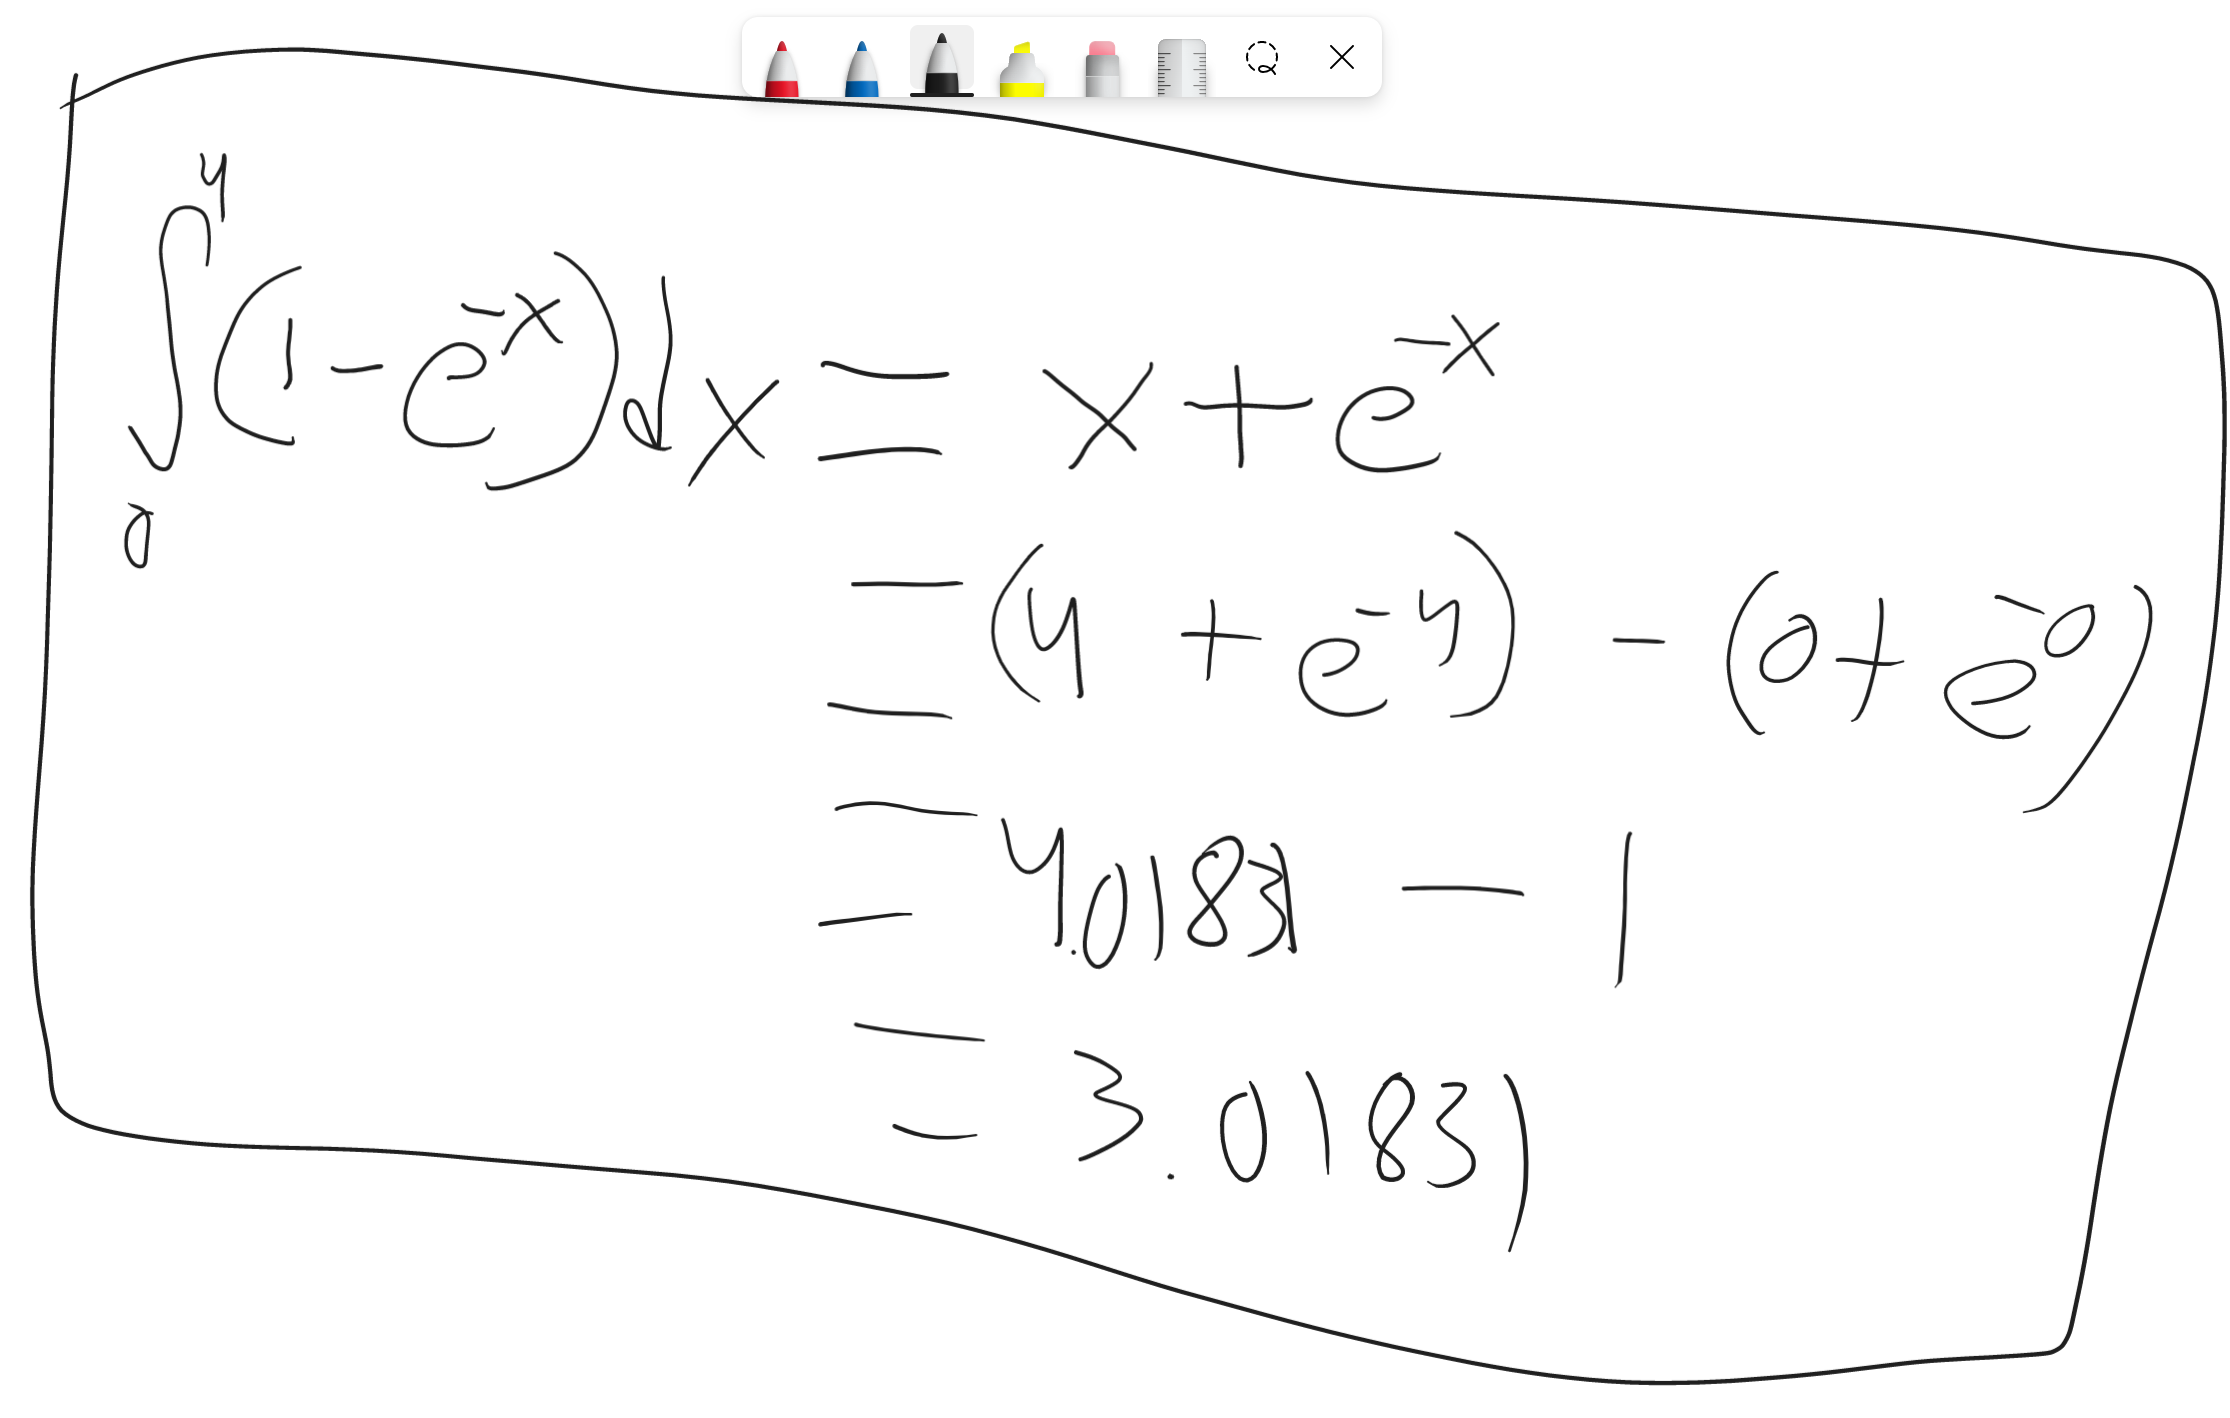 ∫₀⁴ (1 - e⁻ˣ) dx = x + e⁻ˣ
= (4 + e⁻⁴) - (0 + e⁻⁰)
= 4.01831 - 1
= 3.01831